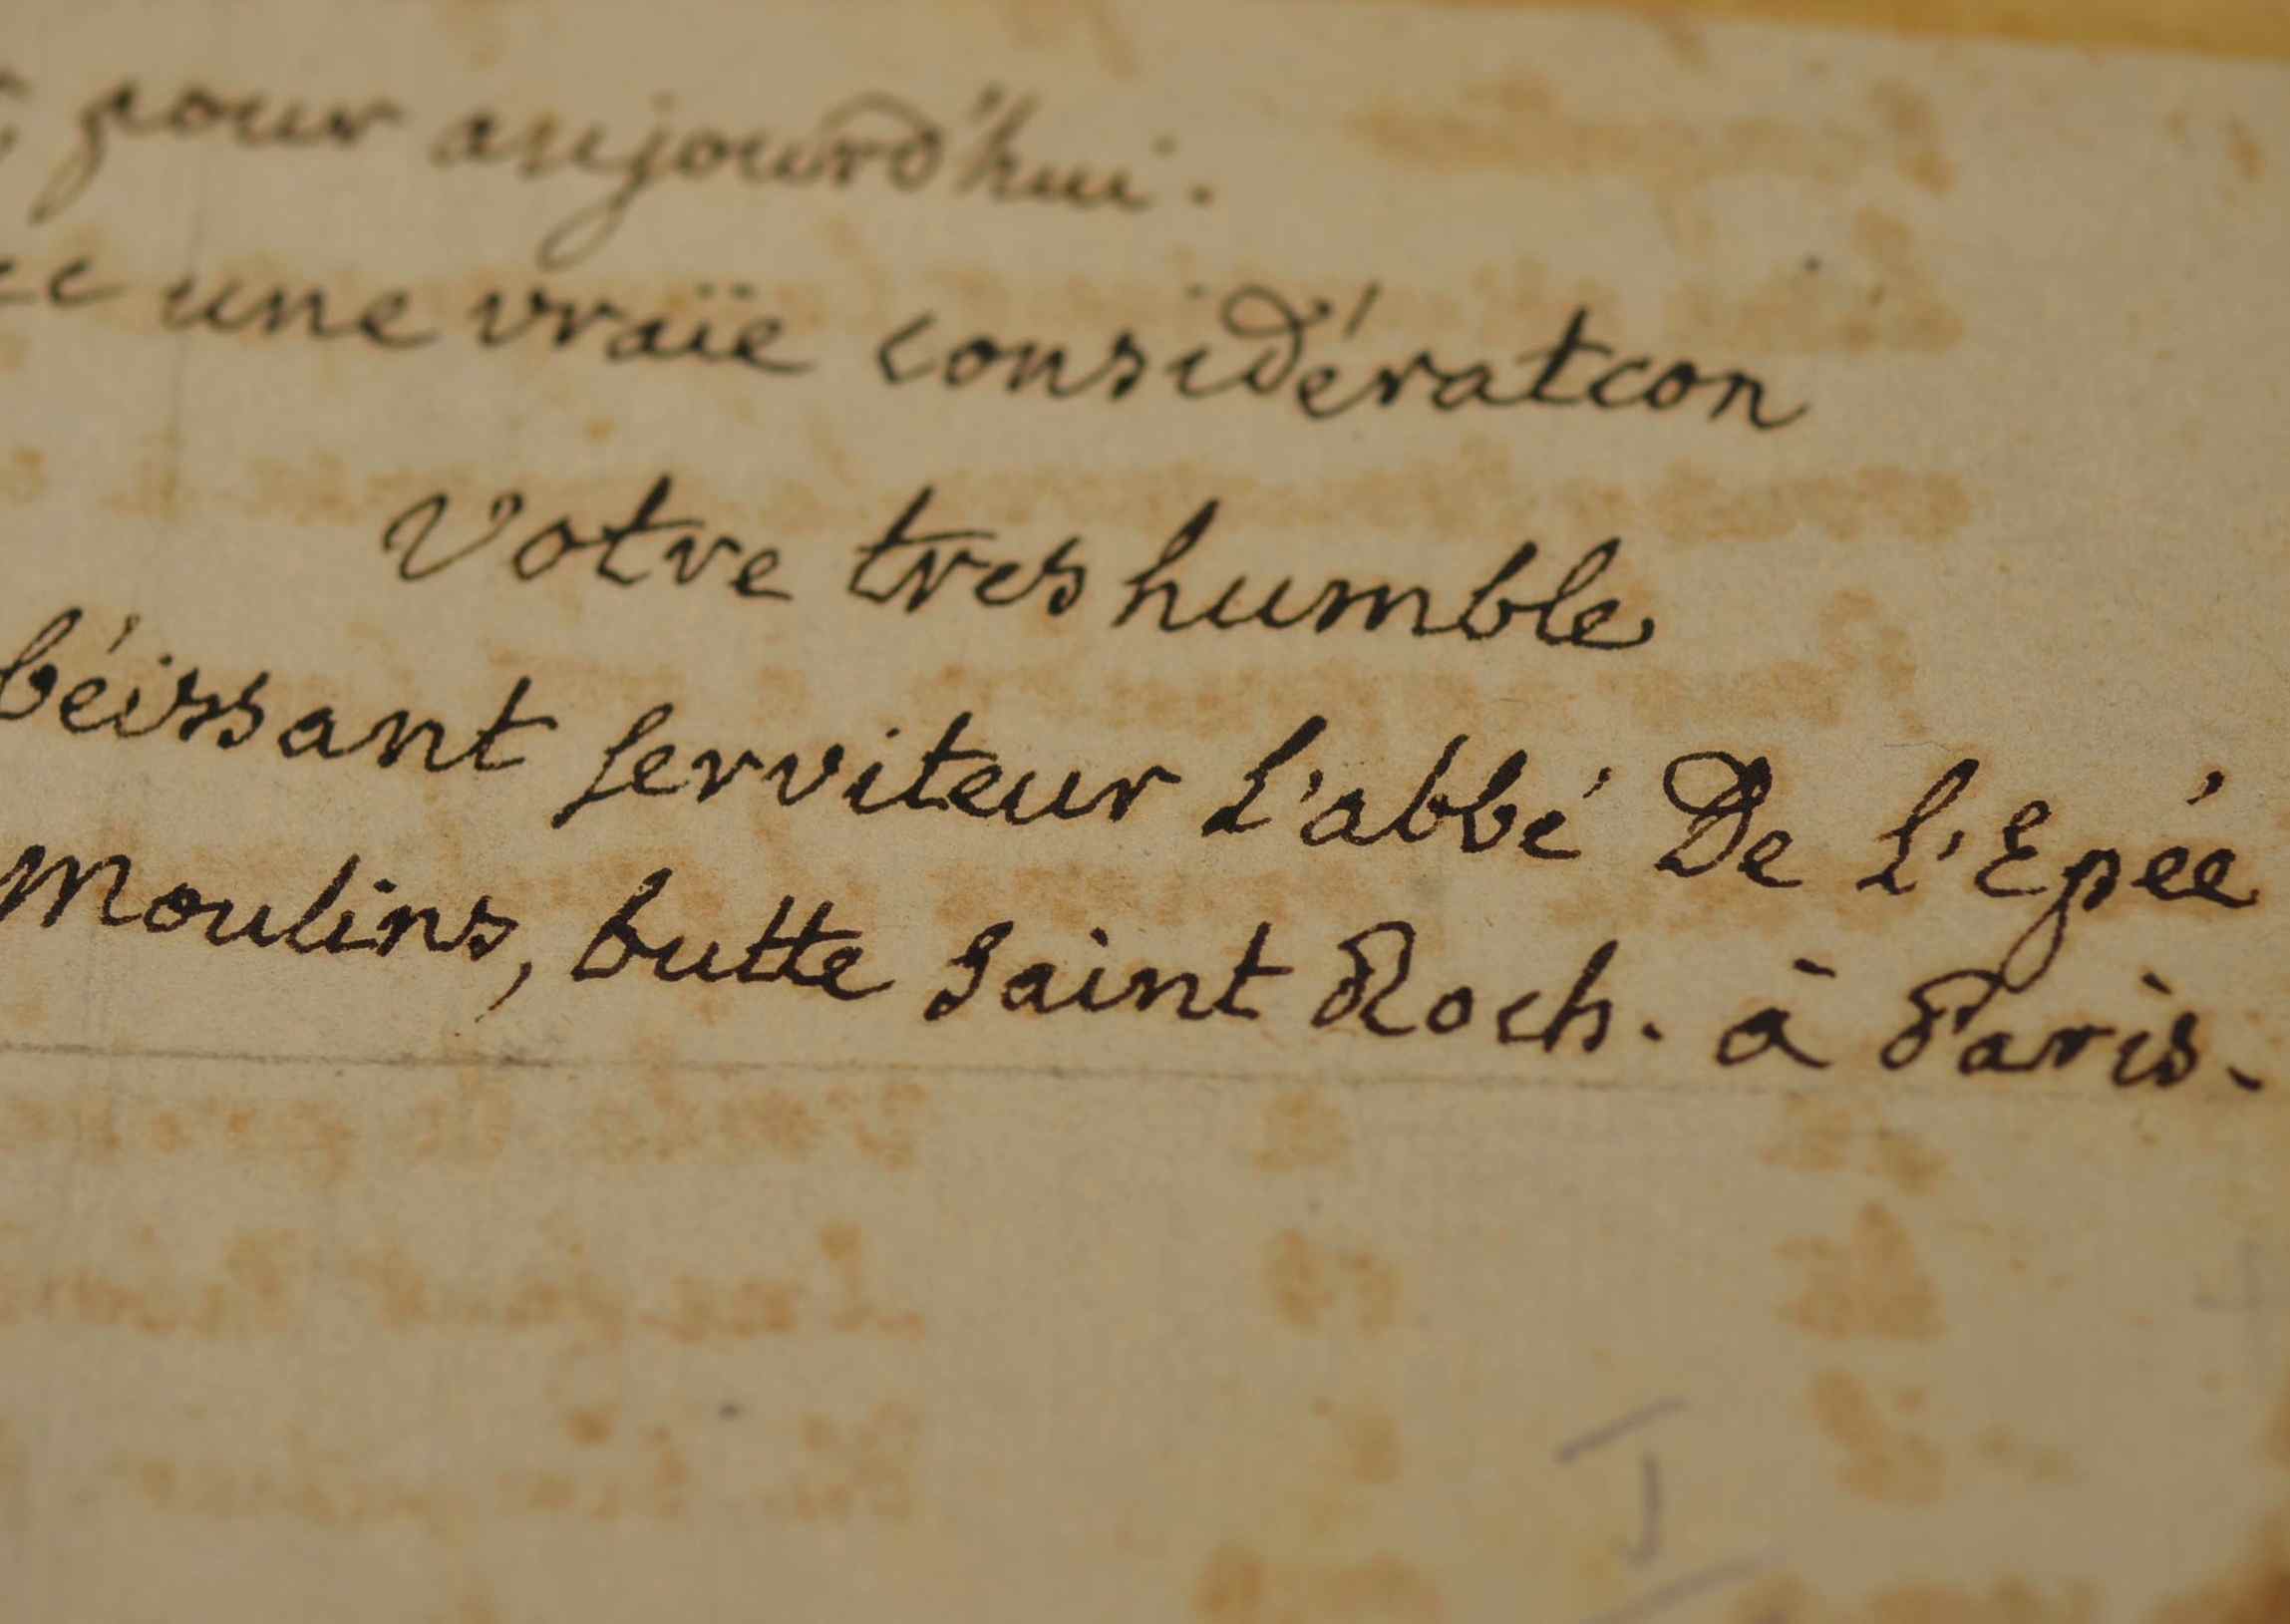 pour aujourd'hui.
une vraïe considération
Votre tres humble
béissant serviteur L'abbé De L'Epée
Moulins, butte saint Roch. à Paris.